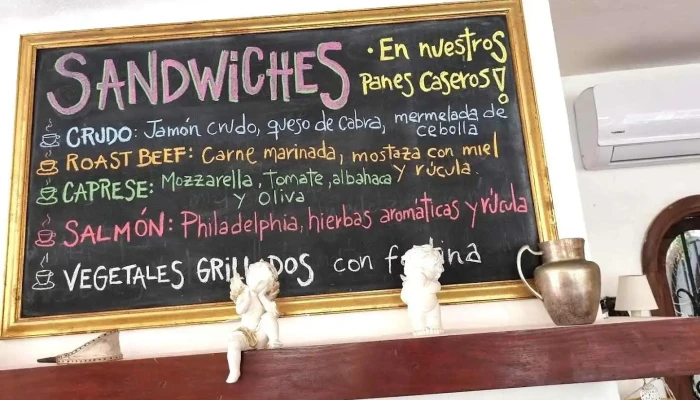 SANDWICHES
• En nuestros
Panes Caseros!
CRUDO: Jamón crudo, queso de Cabra, mermelada de
cebolla
ROAST BEEF: Carne marinada, mostaza con miel
y rúcula.
CAPRESE: Mozzarella, tomate, albahaca
y oliva
SALMÓN: Philadelphia, hierbas aromáticas y rúcula
VEGETALES GRILLADOS con